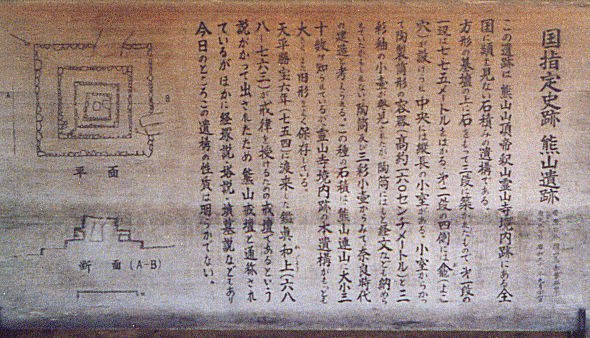 国指定史跡 熊山遺跡
この遺跡は熊山山頂帝釈山霊山寺境内跡にある全
国に類を見ない石積みの遺構である。
方形の基壇の上に石をもって三段に築かれたもので第一段の
一辺は七七五メートルをはかる。第二段の四側には龕(よこ
穴)が設けられ中央には縦長の小室がある。小室からかつ
て陶製筒形の容器(高約一六〇センチメートル)と三
彩釉の小壷が発見されたが陶筒にはもと経文などを納め
ていたかもしれない。陶筒及三彩小壷からみて奈良時代
の建造と考えられる。この種の石積は熊山連山に大小三
十数ヶ知られているが霊山寺境内跡の本遺構がもっとも
大きくまた旧形をよく保存している。
天平勝宝六年(七五四)に渡来した鑑真和上(六八
八〜七六三)が戒律を授けるための戒壇であるという
説がかつて出されたため熊山戒壇と通称され
ているがほかに経塚説・塔説・墳墓説などもあり
今日のところこの遺構の性質は明らかでない。
平面
A
B
断面(A-B)